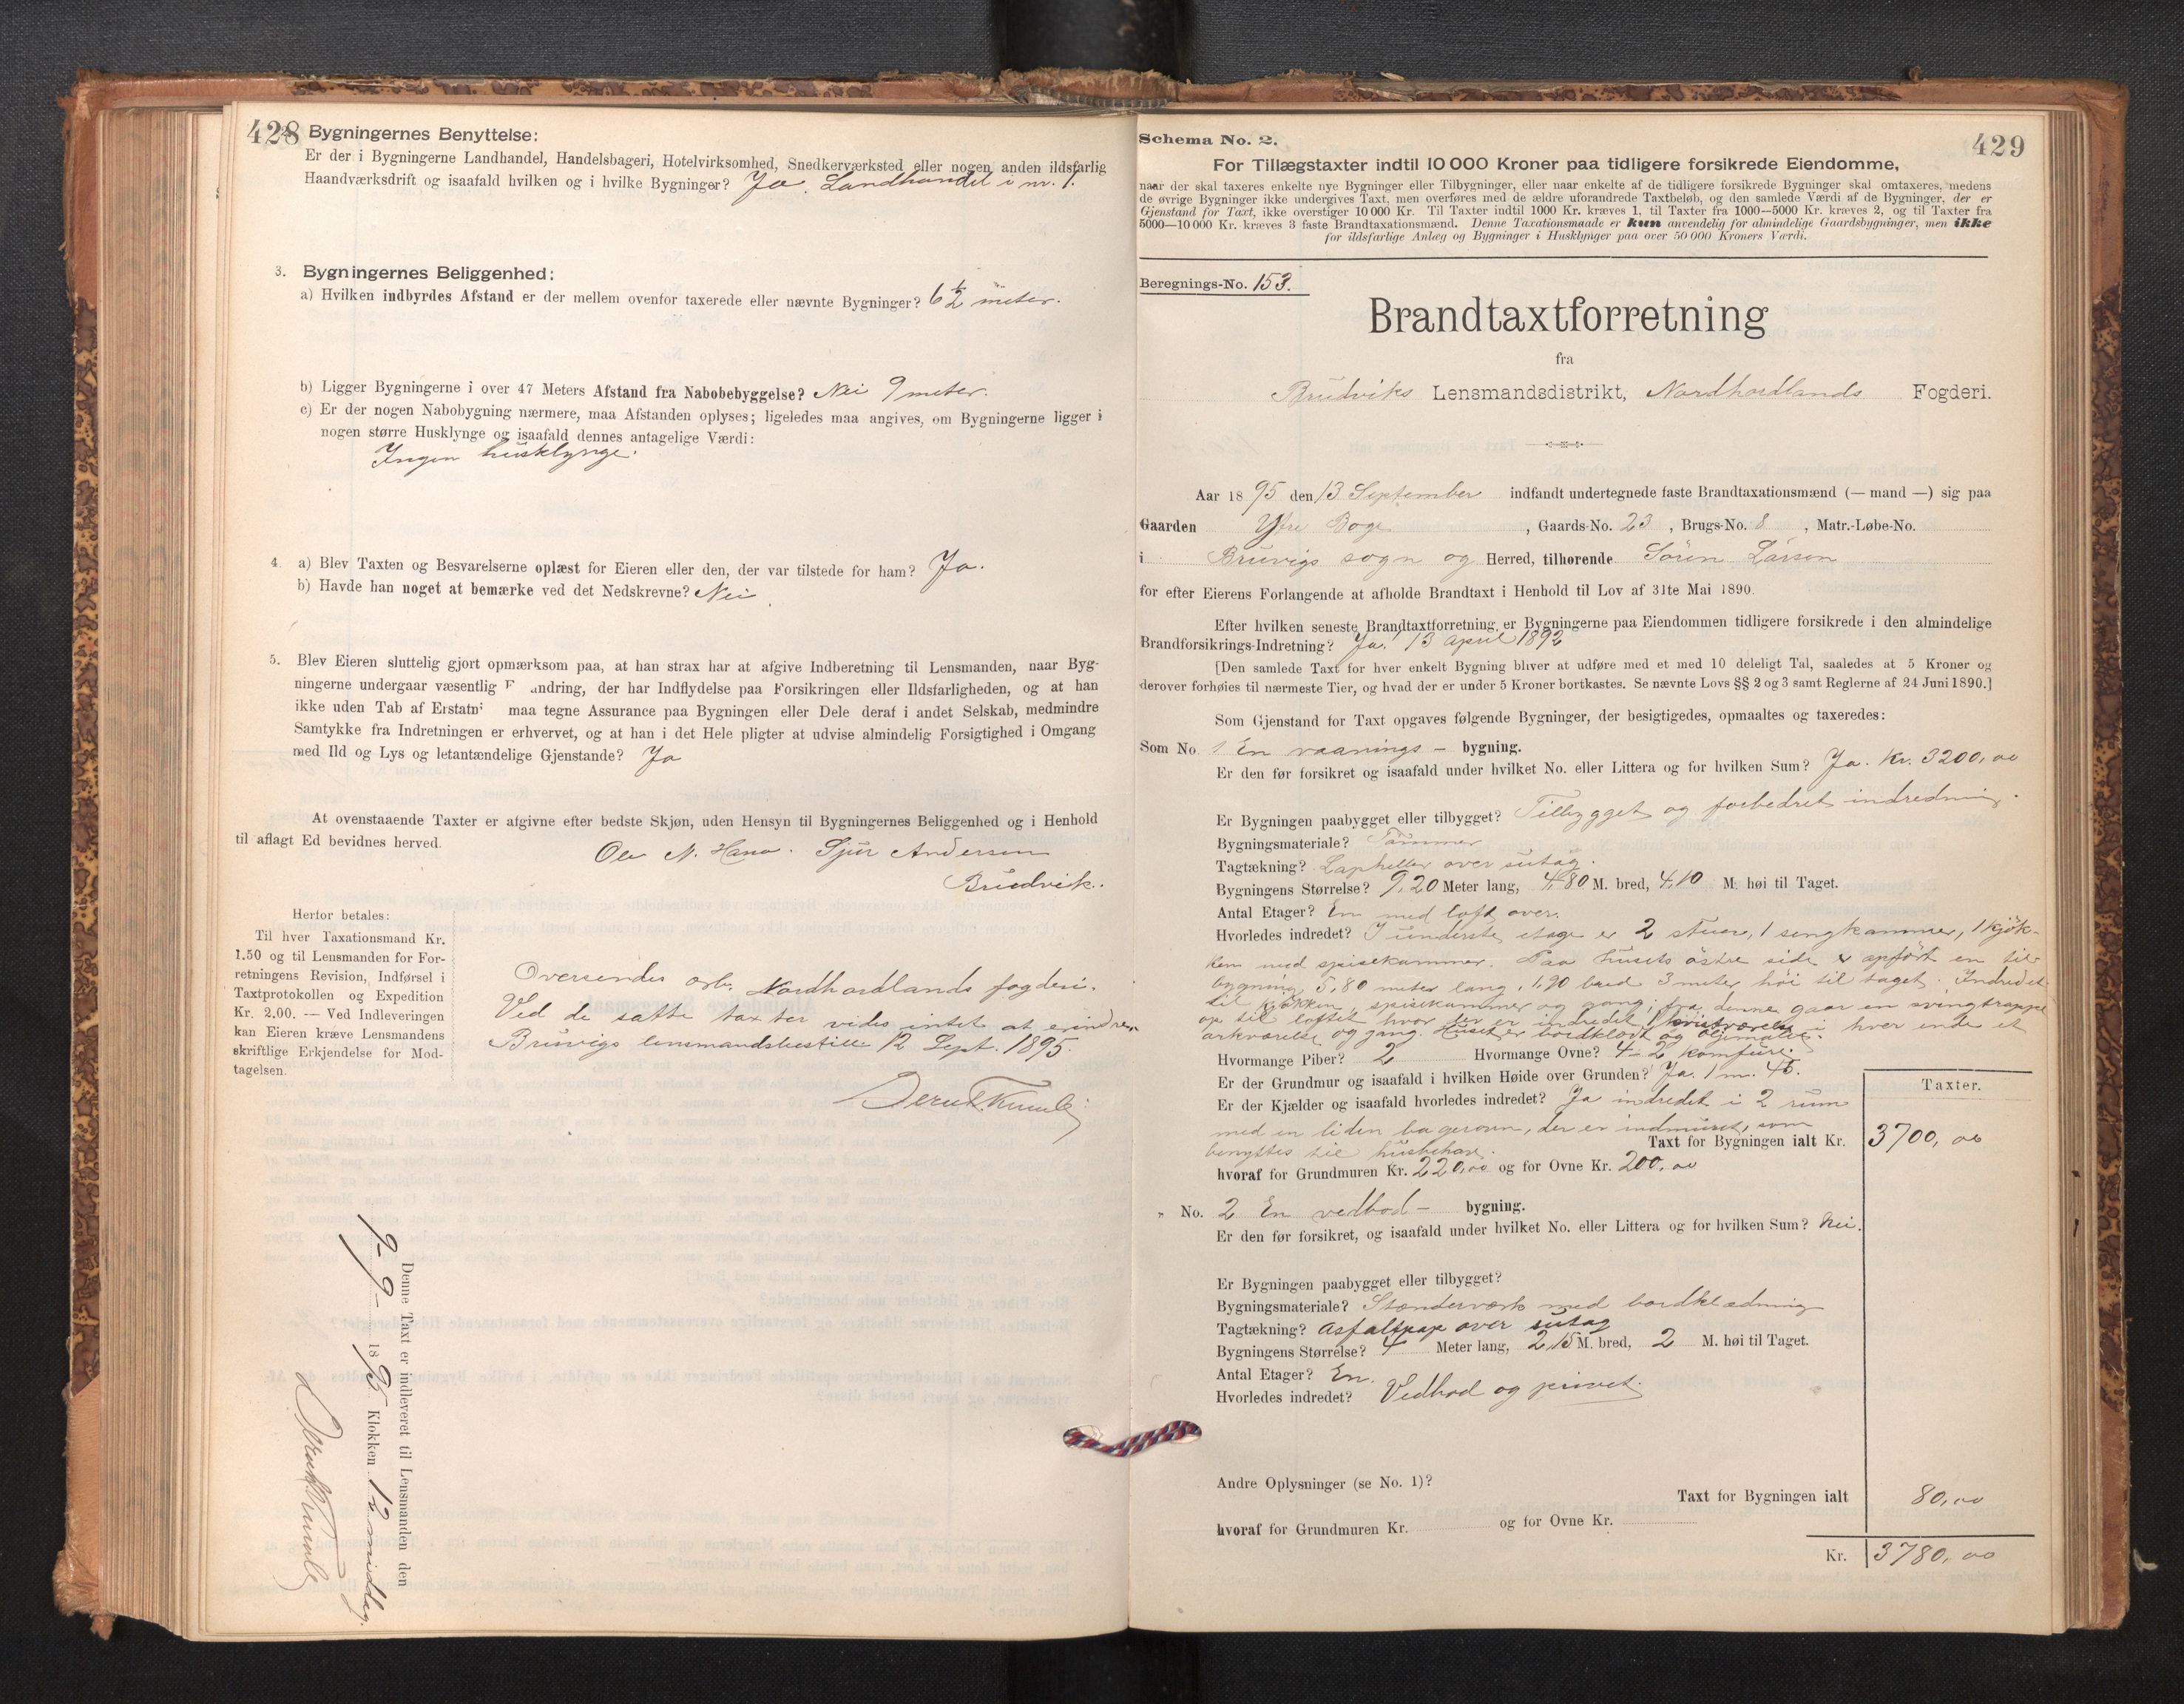 428
Bygningernes Benyttelse:
Er der i Bygningerne Landhandel, Handelsbageri, Hotelvirksomhed, Snedkerværksted eller nogen anden ildsfarlig
Haandværksdrift og isaafald hvilken og i hvilke Bygninger? Ja. Landhandel i nr. 1.
3. Bygningernes Beliggenhed:
a) Hvilken indbyrdes Afstand er der mellem ovenfor taxerede eller nævnte Bygninger? 6 1/2 meter.
b) Ligger Bygningerne i over 47 Meters Afstand fra Nabobebyggelse? Nei 9 meter.
c) Er der nogen Nabobygning nærmere, maa Afstanden oplyses; ligeledes maa angives, om Bygningerne ligger i
nogen større Husklynge og isaafald dennes antagelige Værdi:
Ingen husklynge.
4. a) Blev Taxten og Besvarelserne oplæst for Eieren eller den, der var tilstede for ham? Ja.
b) Havde han noget at bemærke ved det Nedskrevne? Nei
5. Blev Eieren sluttelig gjort opmærksom paa, at han strax har at afgive Indberetning til Lensmanden, naar Byg-
ningerne undergaar væsentlig F andring, der har Indflydelse paa Forsikringen eller Ildsfarligheden, og at han
ikke uden Tab af Erstatni maa tegne Assurance paa Bygningen eller Dele deraf i andet Selskab, medmindre
Samtykke fra Indretningen er erhvervet, og at han i det Hele pligter at udvise almindelig Forsigtighed i Omgang
med Ild og Lys og letantændelige Gjenstande? Ja
At ovenstaaende Taxter er afgivne efter bedste Skjøn, uden Hensyn til Bygningernes Beliggenhed og i Henhold
til aflagt Ed bevidnes herved.
Ole N. Hana. Sjur Andersen
Brudvik.
Herfor betales:
Til hver Taxationsmand Kr.
1.50 og til Lensmanden for For-
retningens Revision, Indførsel i
Taxtprotokollen og Expedition
Kr. 2.00. — Ved Indleveringen
kan Eieren kræve Lensmandens
skriftlige Erkjendelse for Mod-
tagelsen.
Oversendes ærb. Nordhordlands fogderi.
Ved de satte taxter vides intet at erindre.
Bruvigs lensmandsbestill. 12 Sept. 1895.
Denne Taxt er indleveret til Lensmanden den
9-9- 1895 Klokken 12 middag.
Schema No. 2.
429
For Tillægstaxter indtil 10 000 Kroner paa tidligere forsikrede Eiendomme,
naar der skal taxeres enkelte nye Bygninger eller Tilbygninger, eller naar enkelte af de tidligere forsikrede Bygninger skal omtaxeres, medens
de øvrige Bygninger ikke undergives Taxt, men overføres med de ældre uforandrede Taxtbeløb, og den samlede Værdi af de Bygninger, der er
Gjenstand for Taxt, ikke overstiger 10 000 Kr. Til Taxter indtil 1000 Kr. kræves 1, til Taxter fra 1000—5000 Kr. kræves 2, og til Taxter fra
5000—10 000 Kr. kræves 3 faste Brandtaxationsmænd. Denne Taxationsmaade er kun anvendelig for almindelige Gaardsbygninger, men ikke
for ildsfarlige Anlæg og Bygninger i Husklynger paa over 50 000 Kroners Værdi.
Beregnings-No. 153.
Brandtaxtforretning
fra
Brudviks Lensmandsdistrikt, Nordhordlands Fogderi.
Aar 1895 den 13 September indfandt undertegnede faste Brandtaxationsmænd (— mand —) sig paa
Gaarden Ytre Boge, Gaards-No. 23, Brugs-No. 8, Matr.-Løbe-No.
i Bruvigs sogn og Herred, tilhørende Sören Larsen
for efter Eierens Forlangende at afholde Brandtaxt i Henhold til Lov af 31te Mai 1890.
Efter hvilken seneste Brandtaxtforretning er Bygningerne paa Eiendommen tidligere forsikrede i den almindelige
Brandforsikrings-Indretning? Ja. 13 April 1892
[Den samlede Taxt for hver enkelt Bygning bliver at udføre med et med 10 deleligt Tal, saaledes at 5 Kroner og
derover forhøies til nærmeste Tier, og hvad der er under 5 Kroner bortkastes. Se nævnte Lovs §§ 2 og 3 samt Reglerne af 24 Juni 1890.]
Som Gjenstand for Taxt opgaves følgende Bygninger, der besigtigedes, opmaaltes og taxeredes:
Som No. 1 En vaanings - bygning.
Er den før forsikret og isaafald under hvilket No. eller Littera og for hvilken Sum? Ja. Kr. 3200,00
Er Bygningen paabygget eller tilbygget? Tilbygget og forbedret indredning.
Bygningsmateriale? Tömmer
Tagtækning? Lapheller over sutag.
Bygningens Størrelse? 9,20 Meter lang, 4,80 M. bred, 4,10 M. høi til Taget.
Antal Etager? En med loft over.
Hvorledes indredet? I underste etage er 2 stuer, 1 sengkammer, 1 kjök-
ken med spisekammer. Paa husets östre side er opfört en til-
bygning 5,80 meter lang, 1,90 bred 3 meter höi til taget. Indredet
til kjökken, spisekammer og gang; fra denne gaar en svingtrappe
op til loftet hvor der er indredet 1 kvistværelse i hver ende et
arkværelse og gang. Huset er bordklædt og oljemalet.
Hvormange Piber? 2 Hvormange Ovne? 4 - 2 komfure.
Er der Grundmur og isaafald i hvilken Høide over Grunden? Ja. 1 m. 45.
Er der Kjælder og isaafald hvorledes indredet? Ja indredet i 2 rum
med en liden bagerovn, der er indmuret, som
benyttes til husbehov.
Taxter.
Taxt for Bygningen ialt Kr. 3700,00
hvoraf for Grundmuren Kr. 220,00 og for Ovne Kr. 200,00
" No. 2 En vedbod - bygning.
Er den før forsikret, og isaafald under hvilket No. eller Littera og for hvilken Sum? Nei.
Er Bygningen paabygget eller tilbygget?
Bygningsmateriale? Stænderværk med bordklædning
Tagtækning? Asfaltpap over sutag
Bygningens Størrelse? 4 Meter lang, 2,15 M. bred, 2 M. høi til Taget.
Antal Etager? En.
Hvorledes indredet? Vedbod og privet.
Andre Oplysninger (se No. 1)?
Taxt for Bygningen ialt 80,00
hvoraf for Grundmuren Kr. og for Ovne Kr.
Kr. 3780,00